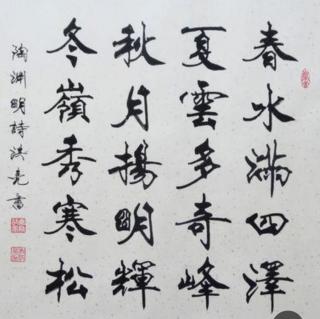 春水滿四澤
夏雲多奇峰
秋月揚明輝
冬嶺秀寒松
陶渊明詩洪亮書